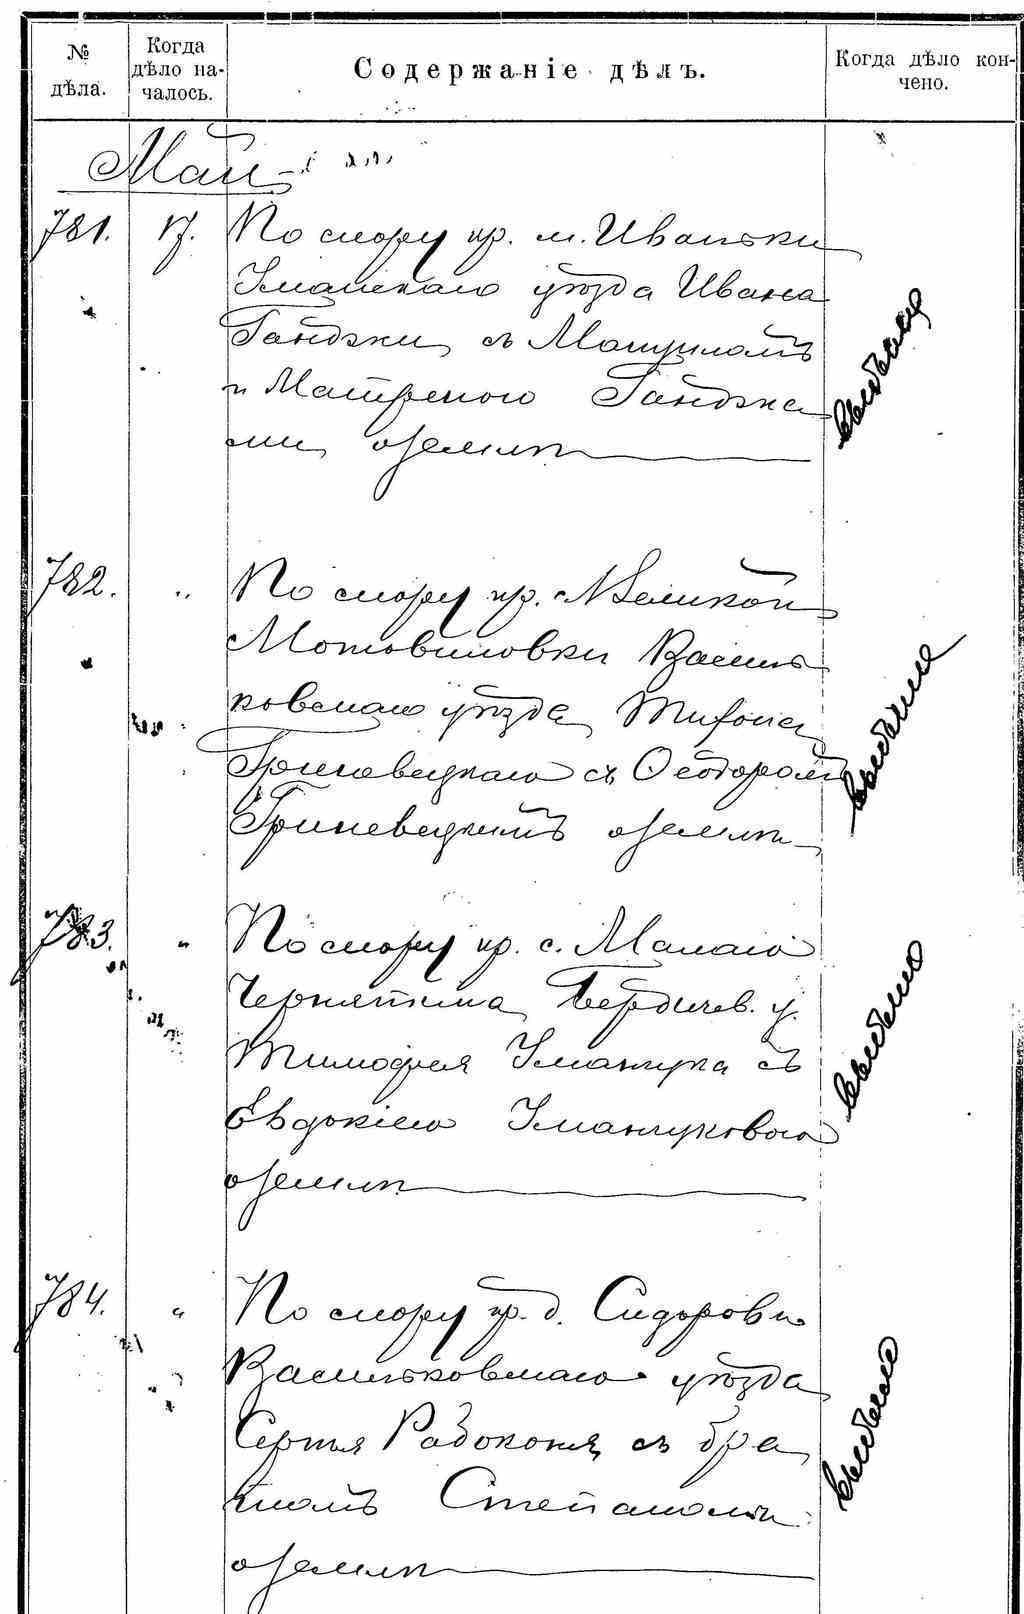 № дѣла.
Когда дѣло на-
чалось.
Содержаніе дѣлъ.
Когда дѣло кон-
чено.
Май
781. 17. По спору кр. м. Иваньки
Уманскаго уѣзда Ивана
Гандзки съ Мануиломъ
и Матреною Гандзка
ми о землѣ
выбыло
782. „ По спору кр. Великой
Мотовиловки Василь
ковскаго уѣзда Трифона
Гриневецкаго съ Ѳеодоромъ
Гриневецкимъ о землѣ
выбыло
783. „ По спору кр. с. Малаго
Чернятина Бердичев. у.
Тимофея Уманчука съ
Евдокіею Уманчуковою
о землѣ
выбыло
784. „ По спору кр. д. Сидоровки
Васильковскаго уѣзда
Сергѣя Рабоконя съ бра
томъ Степаномъ
о землѣ
выбыло